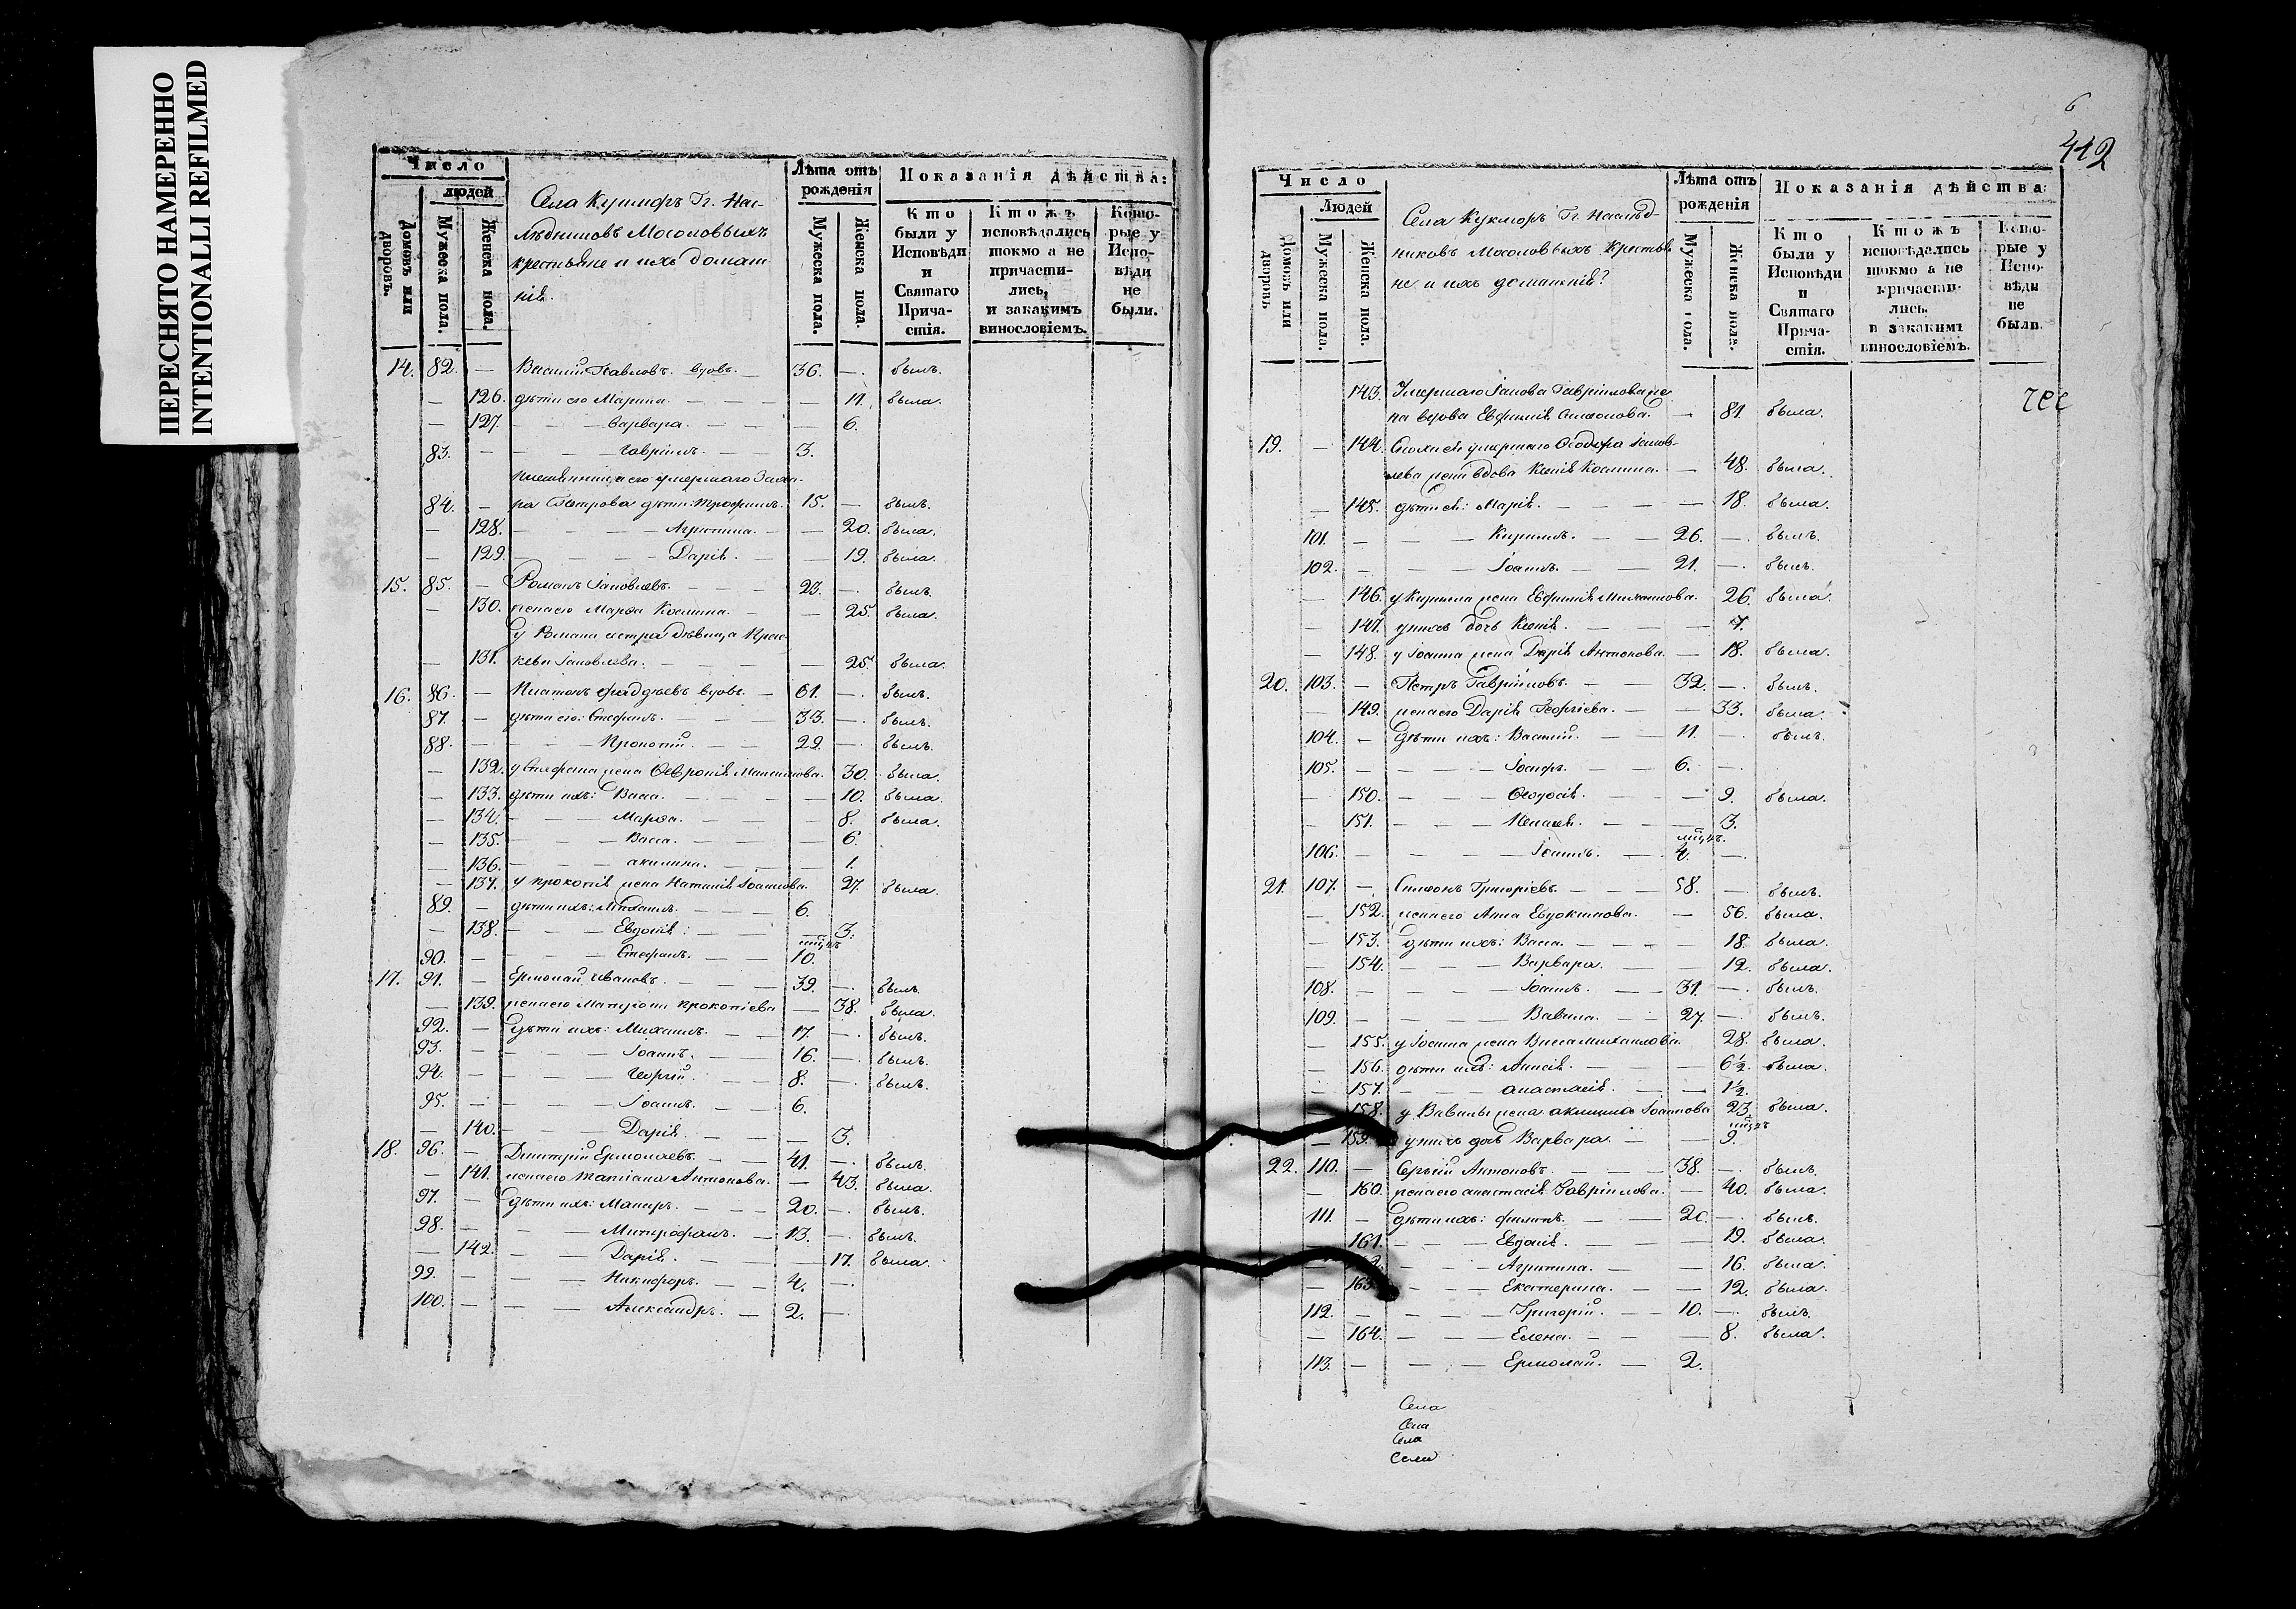 ПЕРЕСНЯТО НАМЕРЕННО
INTENTIONALLI REFILMED
Число
людей
Домовъ или дворовъ.
Мужеска пола.
Женска пола.
Села Кукморъ Гг. Нас-
лѣдниковъ Мосоловыхъ
крестьяне и ихъ домаш
ніѣ.
Лѣта отъ рожденія
Мужеска пола.
Женска пола.
Показанія дѣйства:
Кто были у Исповѣди и Святаго Прича-стія.
Ктожъ исповѣдались токмо а не причасти-лись, и закакимъ винословіемъ.
Кото-рые у Испо-вѣди не были.
14. 82. — Василій Павловъ. вдовъ. — 36. —. былъ.
— 126. дѣти его Марина. — — — — 11. была.
— 127. — — — варвара. — — — 6.
83. — — — — гавріилъ. — — 3.
племянника его умершаго Заха-
84. — ра Петрова дѣти: Трофимъ. 15. — былъ.
— 128. — — — Агрипина. — — 20. была.
— 129. — — — — Даріѣ. — — 19. была.
15. 85. — Романъ Іаковлевъ. — — — 23. —. былъ.
— 130. жена его Марѳа Космина. — — 25. была.
у Романа сестра дѣвица Прас-
— 131. кевы Іаковлева. — — — — 25. была.
16. 86. — Платонъ фаддѣевъ вдовъ. — 61. —. былъ.
87. — дѣти его: Стефанъ. — — — 33. —. былъ.
88. — — — — Прокопій. — — 29. —. былъ.
— 132. у Стефана жена Ѳевроніѣ Максимова. 30. была.
— 133. дѣти ихъ: Васса. — — — — 10. была.
— 134. — — — Марѳа. — — — 8. была.
— 135. — — — Васса. — — — 6.
— 136. — — — акилина. — — — 1.
— 137. у прокопіѣ жена Наталіѣ Іоаннова. 27. была.
89. — дѣти ихъ: Михаилъ. — — — 6.
— 138. — — — Евдокіѣ: — — — 3.
90. — — — — Стефанъ. — — мцъ 10.
17. 91. — Ермолай Ивановъ. — — — 39. —. былъ.
— 139. жена его прокопіева — 38. была.
92. — Дѣти ихъ: Михаилъ. — — 17. —. былъ.
93. — — — — Іоаннъ. — — 16. —. былъ.
94. — — — — Георгій. — — 8. —. былъ.
95. — — — — Іоаннъ. — — 6.
— 140. — — — Даріѣ. — — — 3.
18. 96. — Димитрій Ермолаевъ. — — 41. —. былъ.
— 141. жена его татіана Антонова. — 43. была.
97. — Дѣти ихъ: Макаръ. — — — 20. —. былъ.
98. — — — Митрофанъ. — 13. —. былъ.
— 142. — — — Даріѣ. — — — 17. была.
99. — — — Никифоръ. — — 4. —.
100. — — — Александръ. — 2. —.
6
412
Число
Людей
Домовъ или дворовъ
Мужеска пола.
Женска пола.
Села Кукморъ Гг. Наслѣд-
никовъ Мосоловыхъ Крестья
не и ихъ домашніѣ?
Лѣта отъ рожденія
Мужеска пола.
Женска пола.
Показанія дѣйства:
Кто были у Исповѣди и Святаго Прича-стія.
Ктожъ исповѣдались токмо а не причасти-лись, и закакимъ винословіемъ.
Кото-рые у Испо-вѣди не были.
143. Умершаго Іакова Гавріилова же
на вдова Евфиміѣ Симеонова. — 81. была.
19. — 144. умершаго Ѳеодора Іаков-
лева жена вдова Ксеніѣ Космина. — 48. была.
— 145. дѣти еѣ: Маріѣ. — — — — 18. была.
101. — — — Кирилъ. — — 26. —. былъ.
102. — — — Іоаннъ. — — 21. —. былъ.
— 146. у Кирилла жена Евфиміѣ Михаилова. 26. была.
— 147. у нихъ дочь Ксеніѣ. — — — 7.
— 148. у Іоанна жена Даріѣ Антонова. — 18. была.
20. 103. — Петръ Гавріиловъ. — — 32. —. былъ.
— 149. жена его Даріѣ Георгіева. — — 33. была.
104. — Дѣти ихъ: Василій. — — 11. —. былъ.
105. — — — — Іосифъ. — 6. —.
— 150. — — — Ѳеодосіѣ. — — 9. была.
— 151. — — — — — 3.
106. — — — — Іоаннъ. — мцъ. 4. —.
21. 107. — Симеонъ Григоріевъ. — — — 58. —. былъ.
— 152. жена его Анна Евдокимова. — 56. была.
— 153. Дѣти ихъ: Васса. — — — — 18. была.
— 154. — — — Варвара. — — 12. была.
108. — — — — Іоаннъ. — — 31. —. былъ.
109. — — — — Вавила. — — 27. —. былъ.
— 155. у Іоанна жена Васса михаилова. 28. была.
— 156. дѣти ихъ: — — — 6½. была.
— 157. — — — анастасіѣ. — — 1½.
158. у Вавилы жена акилина Іоаннова 23. была.
— 159. у нихъ дочь Варвара. — — мцъ 9.
22. 110. — Сергѣй Антоновъ. — — — 38. —. былъ.
— 160. жена его анастасіѣ Гавріилова. — 40. была.
111. — Дѣти ихъ: филипъ. — — 20. —. былъ.
161. — — — Евдокіѣ. — — — 19. была.
— — — — Агрипина. — — 16. была.
163. — — — Екатерина. — — 12. была.
112. — — — Григорій. — — 10. —. былъ.
— 164. — — — Елена. — — — 8. была.
113. — — — Ермолай. — 2.
Села
Села
Села
Села